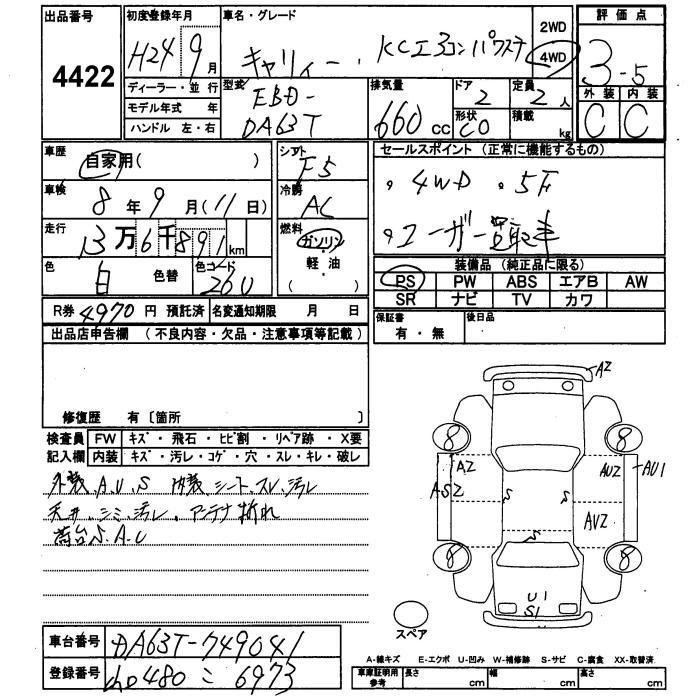 出品番号
4422
初度登録年月
H24 9月
車名・グレード
キャリィー KCエアコンパワステ
2WD
4WD
評価点
3.5
外装 内装
C C
ディーラー・並行
モデル年式 年
ハンドル 左・右
型式
EBD-
DA63T
排気量
660cc
ドア
2
形状
CO
定員
2人
積載
kg
車歴
自家用( )
車検
8年9月(11日)
走行
13万6千891km
色
白
色替
色コード
26U
シフト
F5
冷房
AC
燃料
ガソリン
軽・油
( )
セールスポイント (正常に機能するもの)
。4WD 。5F
。ユーザー買取車
装備品 (純正品に限る)
PS PW ABS エアB AW
SR ナビ TV カワ
R券 4970円 預託済 名変通知期限 月 日
保証書
有・無
後日品
出品店申告欄 (不良内容・欠品・注意事項等記載)
修復歴 有〔箇所 〕
検査員 FW キズ・飛石・ヒビ割・リペア跡・X要
記入欄 内装 キズ・汚レ・コゲ・穴・スレ・キレ・破レ
外装、A、U、S 内装、シート、スレ、汚レ
天井、シミ、汚レ、アンテナ折れ
荷台S、A、U
AZ
8 8
AZ AUZ AU1
ASZ S S AVZ
S
8 8
U1
S1
スペア
車台番号 DA63T-749041
登録番号 480 こ 6973
A-線キズ E-エクボ U-凹み W-補修跡 S-サビ C-腐食 XX-取替済
車庫証明用参考 長さ cm 幅 cm 高さ cm